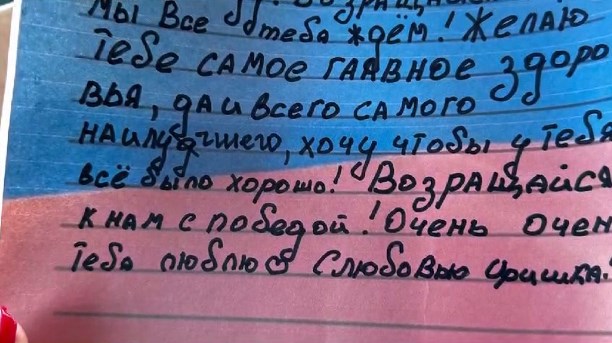 Мы все тебя ждём! Желаю
тебе самое главное здоро
вья, да и всего самого
наилудчшего, хочу чтобы у тебя
всё было хорошо! Возращайся
к нам с победой! Очень очен
тебя люблю С любовью Иришка.